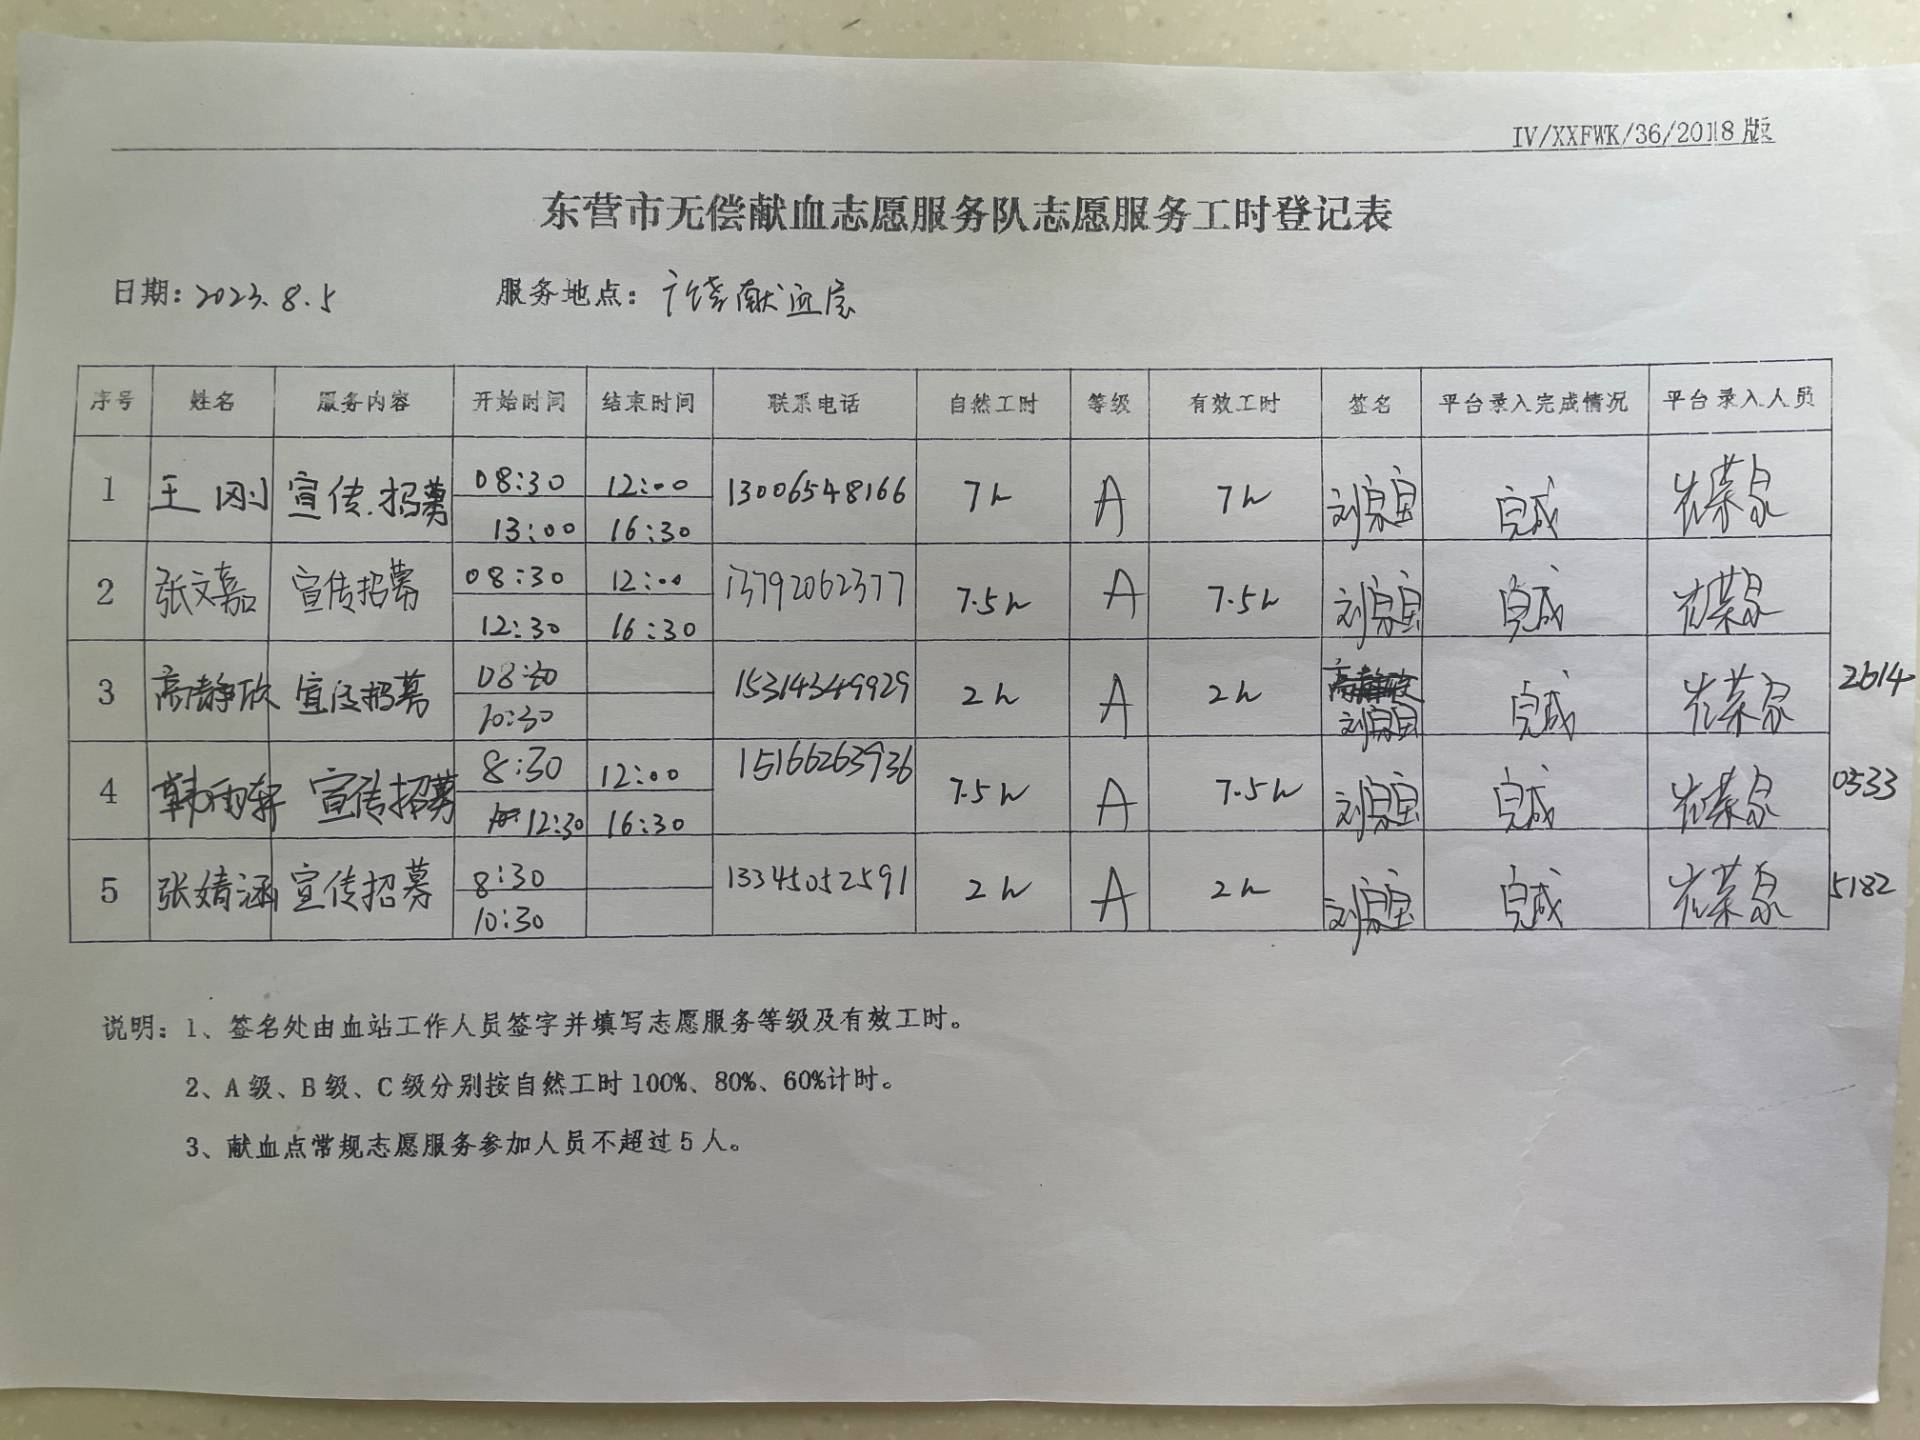 IV/XXFWK/36/2018版
东营市无偿献血志愿服务队志愿服务工时登记表
日期：2023.8.5 服务地点：广饶献血屋
序号 姓名 服务内容 开始时间 结束时间 联系电话 自然工时 等级 有效工时 签名 平台录入完成情况 平台录入人员
1 王刚 宣传.招募 08:30 12:00 13006548166 7h A 7h 刘宗宝 完成 崔荣泉
13:00 16:30
2 张文嘉 宣传招募 08:30 12:00 13792062377 7.5h A 7.5h 刘宗宝 完成 崔荣泉
12:30 16:30
3 高静欣 宣传招募 08:30 15314349929 2h A 2h 刘宗宝 完成 崔荣泉 2614
10:30
4 韩雨轩 宣传招募 8:30 12:00 15166263936 7.5h A 7.5h 刘宗宝 完成 崔荣泉 0533
12:30 16:30
5 张婧涵 宣传招募 8:30 13345052591 2h A 2h 刘宗宝 完成 崔荣泉 5182
10:30
说明：1、签名处由血站工作人员签字并填写志愿服务等级及有效工时。
2、A级、B级、C级分别按自然工时100%、80%、60%计时。
3、献血点常规志愿服务参加人员不超过5人。